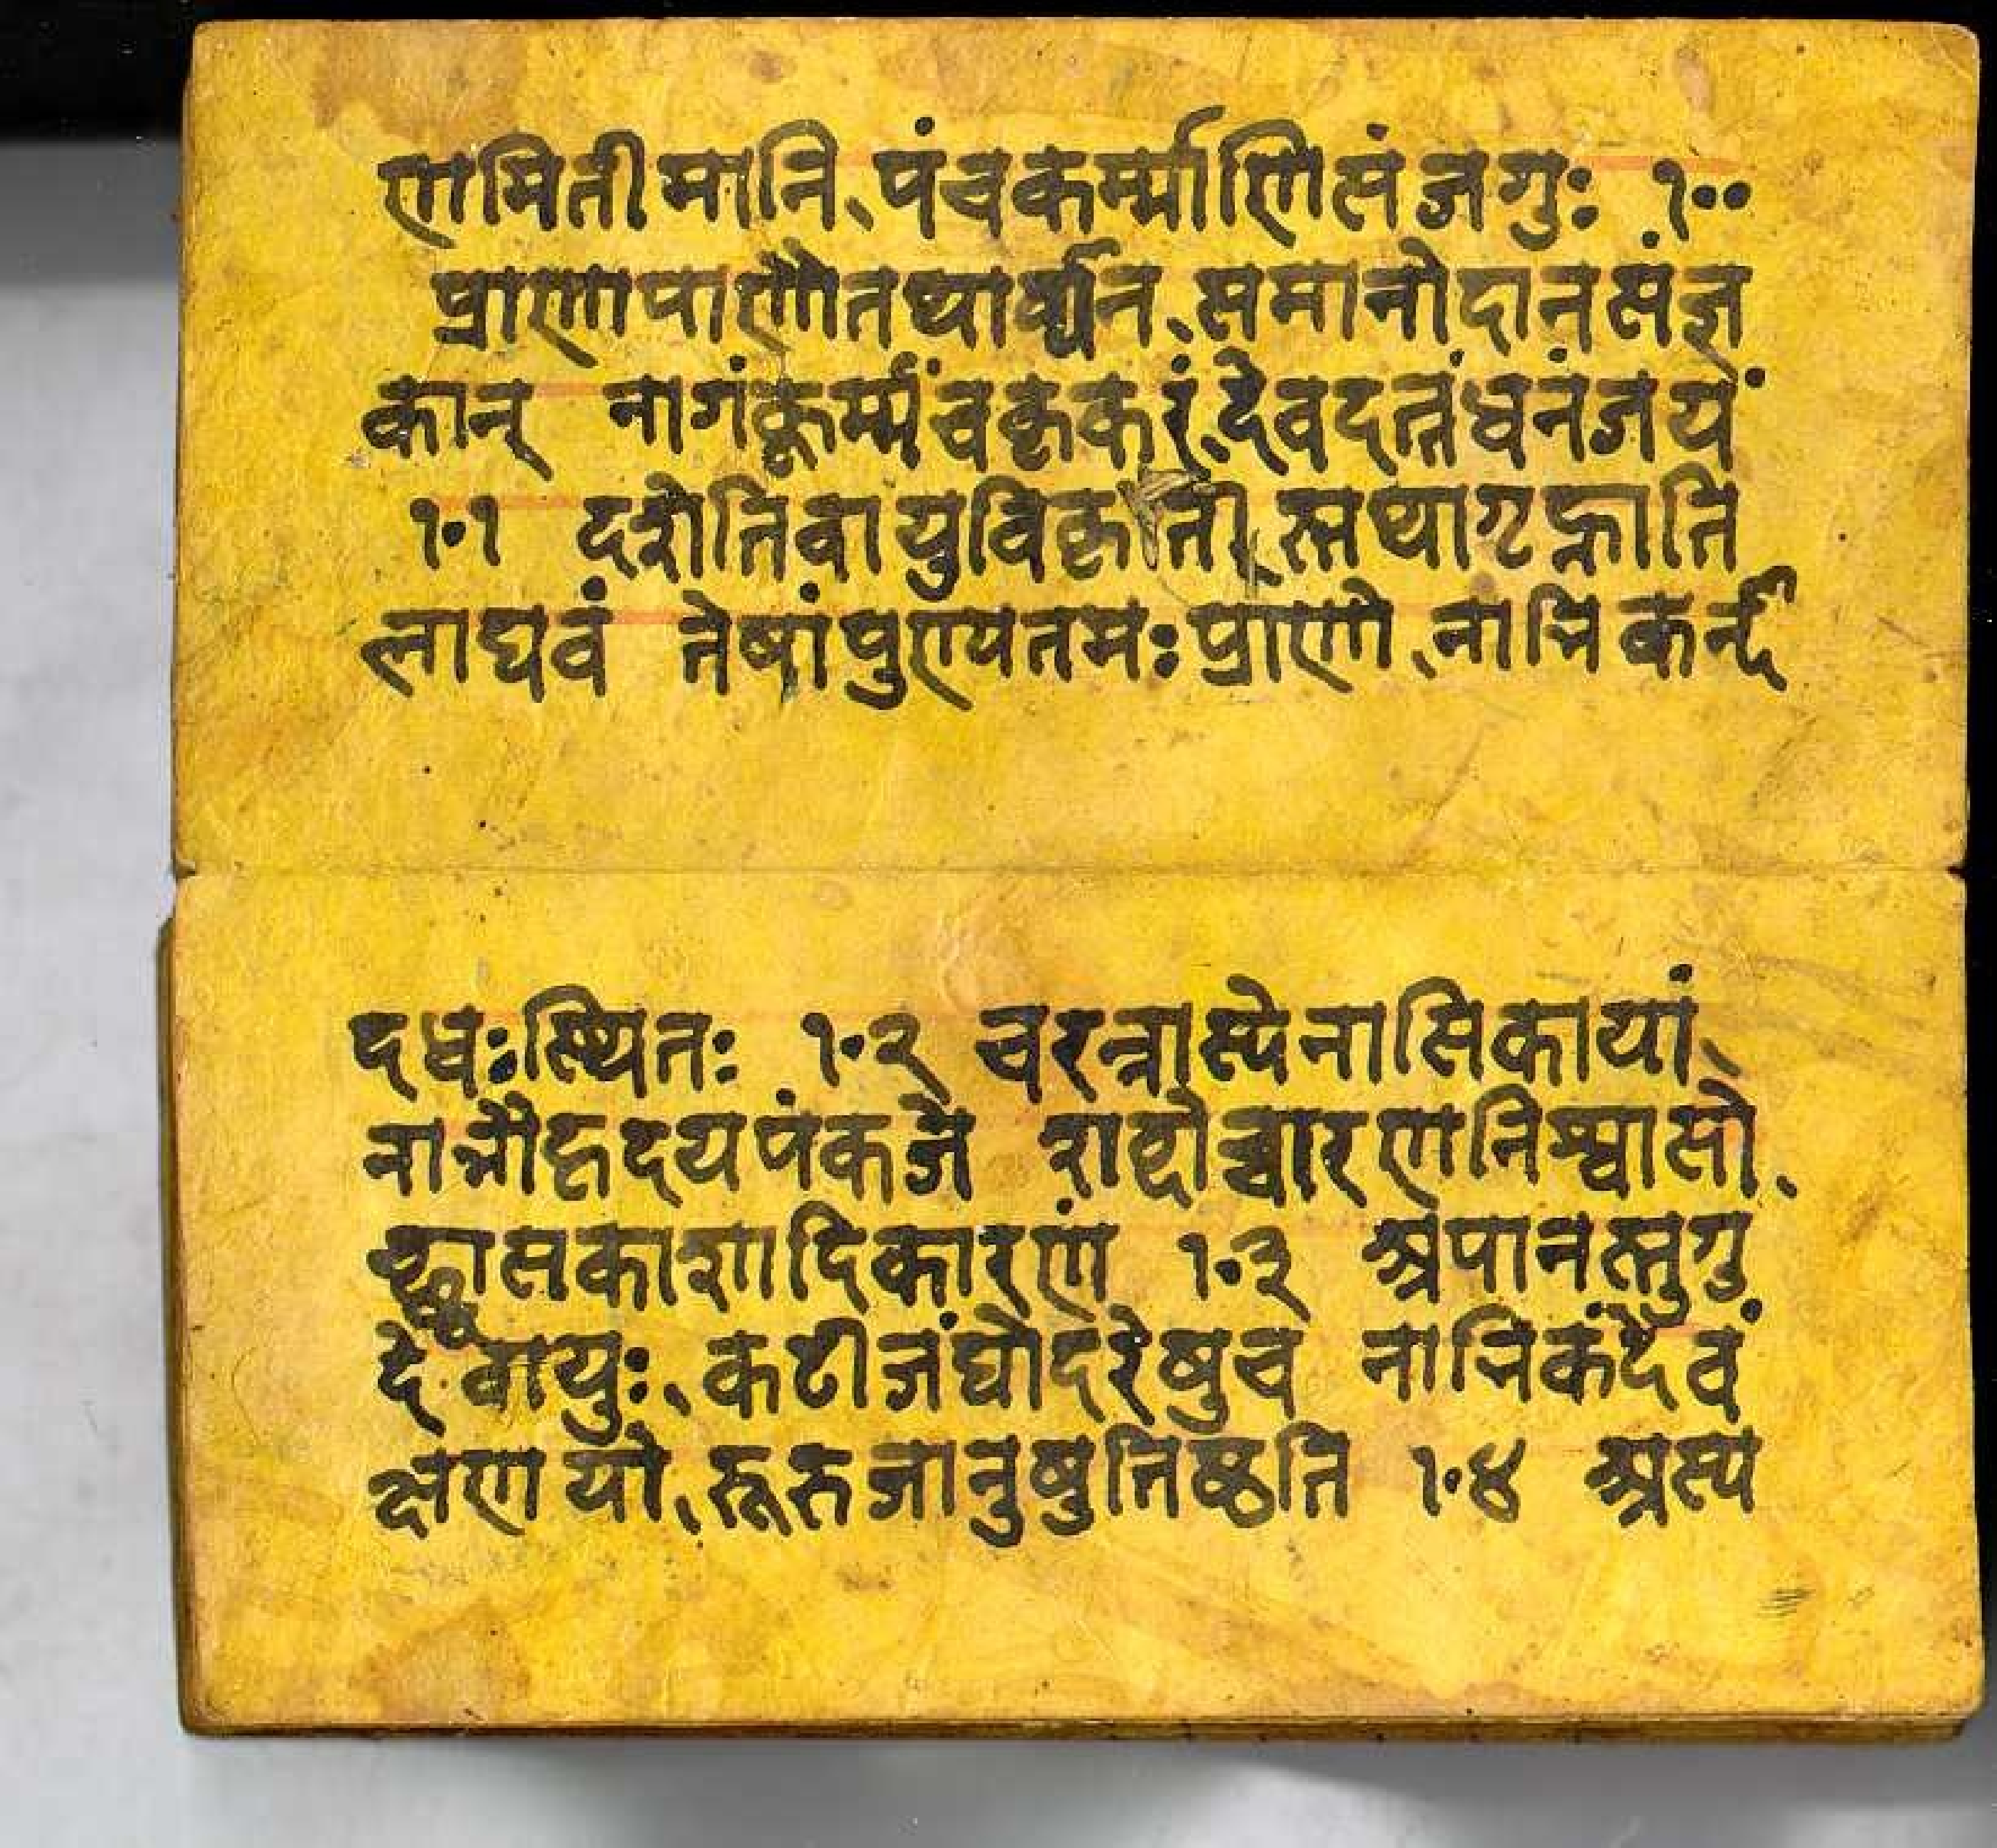 णामितीमानि पंचकर्म्माणिसंजगुः १००
प्राणापाणौतथाव्यान समानोदानसंज्ञ
कान् नागंकूर्म्मंचकृकरं देवदत्तंधनंजयं
१०१ दशेतिवायुविकृती स्तथागृह्णाति
लाघवं तेषांपुण्यतमःप्राणो नाभिकर्न्दा
दधःस्थितः १०२ चरत्नास्येनासिकायां
नाभौहृदयपंकजे शद्दोच्चारणनिश्वासो
छ्वासकाशादिकारणं १०३ अपानस्तुगु
दे वायुः कटीजंघोदरेषुच नाभिकंदेवं
क्षणयो रूरुजानुषुतिष्ठति १०४ अस्य